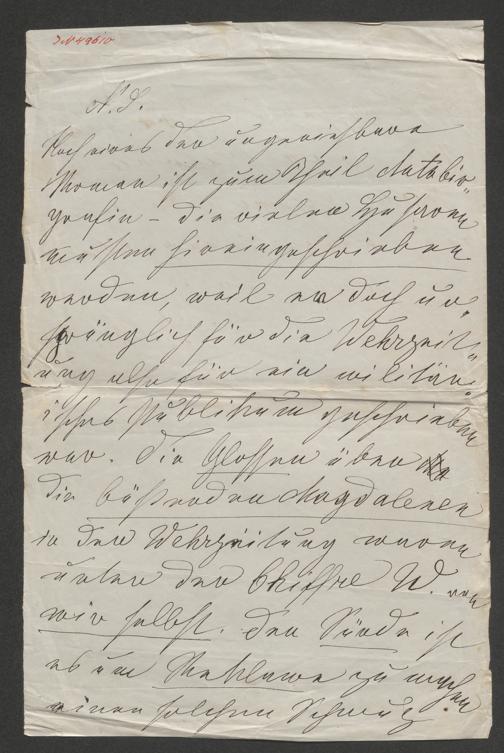 IN 49610
N. S.
Noch eines der
Roman ist zum Theil Autobio„
grafie – die vielen Husaren
mußten hineingeschrieben
werden, weil er doch ur„
sprünglich für die Wehrzeit„
ung also für ein militär„
isches Publikum geschrieben
war. Die Glossen über
die büßenden Magdalenen
in der Wehrzeitung waren
unter der Chiffre W. von
mir selbst. Der Sünde ist
es um Reklame zu machen
einen solchen Schmutz